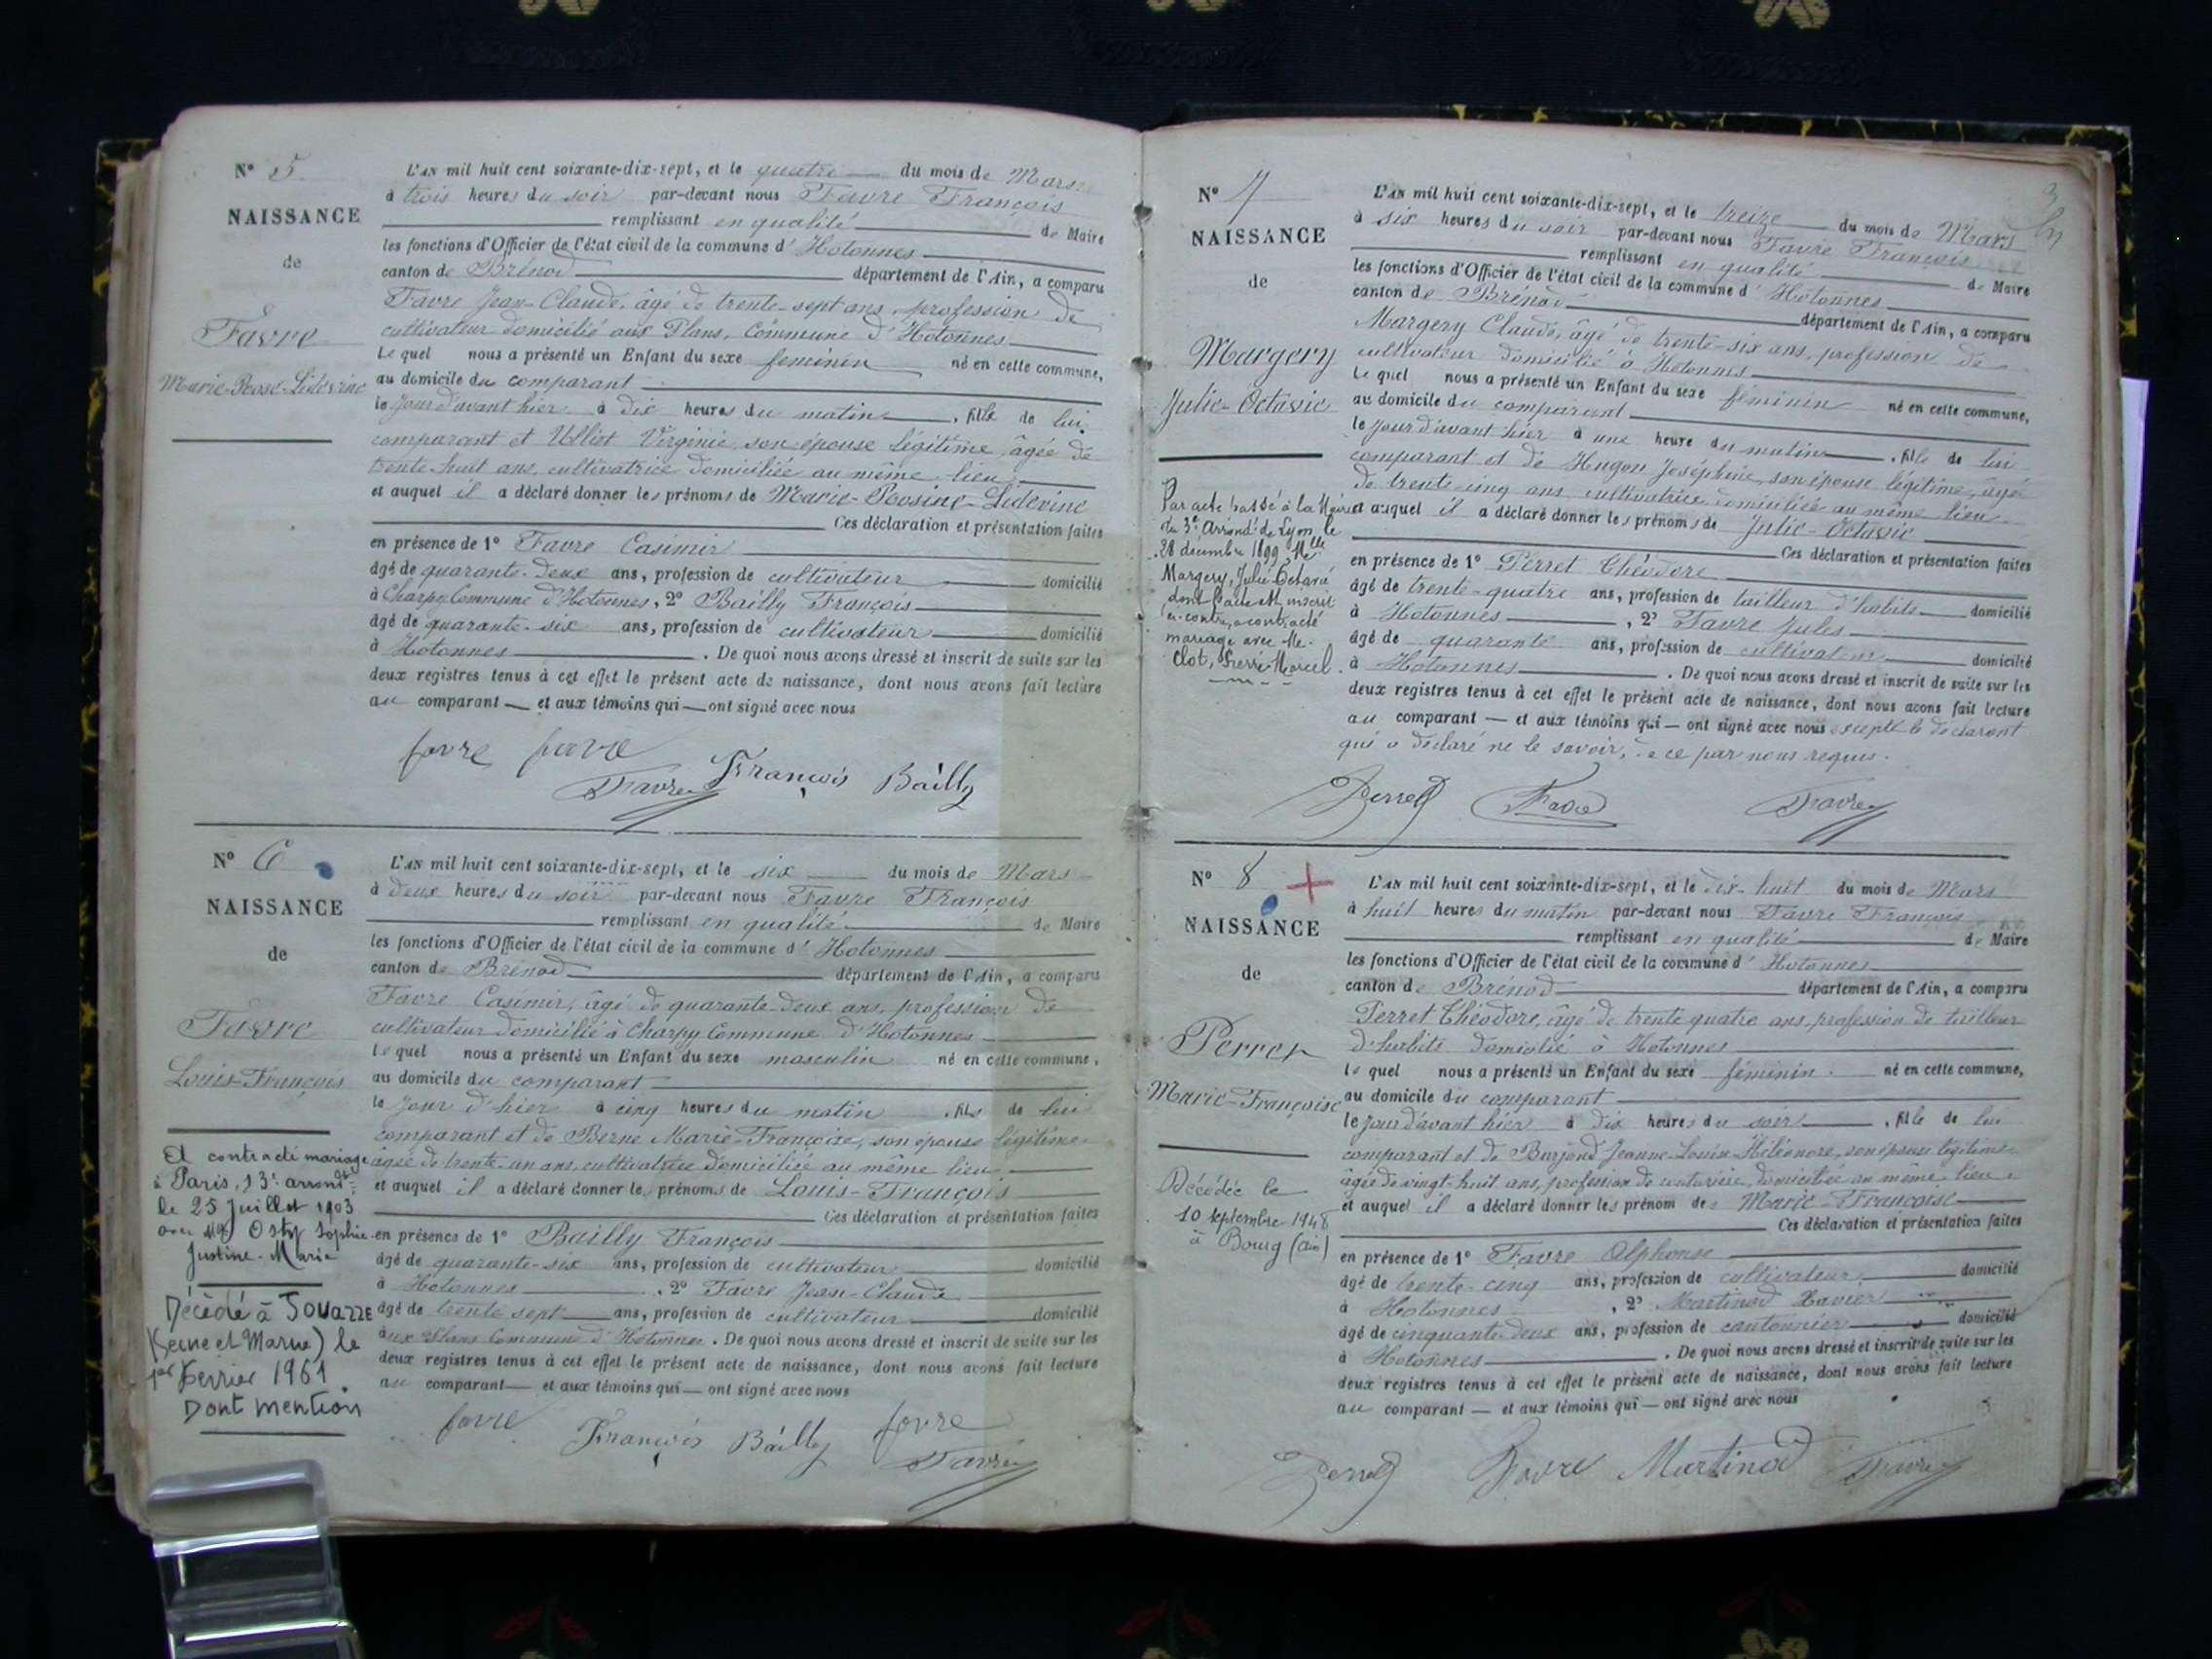 N° 5
NAISSANCE
de
Favre
Marie-Rose-Lidevine
L'AN mil huit cent soixante-dix-sept, et le quatre du mois de Mars
à trois heures du soir par-devant nous Favre François
remplissant en qualité de Maire
les fonctions d'Officier de l'état civil de la commune d'Hotonnes
canton de Brénod département de l'Ain, a comparu
Favre Jean-Claude, âgé de trente-sept ans, profession de
cultivateur domicilié aux Plans, Commune d'Hotonnes
Le quel nous a présenté un Enfant du sexe féminin né en cette commune,
au domicile du comparant
le jour d'avant hier à dix heures du matin, fille de lui
comparant et Ulliet Virginie son épouse légitime, âgée de
trente-huit ans, cultivatrice domiciliée au même lieu
et auquel il a déclaré donner les prénoms de Marie-Rosine-Lidevine
Ces déclaration et présentation faites
en présence de 1° Favre Casimir
âgé de quarante-deux ans, profession de cultivateur domicilié
à Charpy Commune d'Hotonnes, 2° Bailly François
âgé de quarante-six ans, profession de cultivateur domicilié
à Hotonnes. De quoi nous avons dressé et inscrit de suite sur les
deux registres tenus à cet effet le présent acte de naissance, dont nous avons fait lecture
au comparant et aux témoins qui ont signé avec nous
favre favre
Favre François Bailly
N° 6
NAISSANCE
de
Favre
Louis-François
A contracté mariage
à Paris, 13e arrondt
le 25 Juillet 1903
avec Mlle Osty Sophie
Justine-Marie
Décédé à Jouarre
(Seine et Marne) le
1er Février 1961
Dont mention
L'AN mil huit cent soixante-dix-sept, et le six du mois de Mars
à deux heures du soir par-devant nous Favre François
remplissant en qualité de Maire
les fonctions d'Officier de l'état civil de la commune d'Hotonnes
canton de Brénod département de l'Ain, a comparu
Favre Casimir, âgé de quarante-deux ans, profession de
cultivateur domicilié à Charpy Commune d'Hotonnes
Le quel nous a présenté un Enfant du sexe masculin né en cette commune,
au domicile du comparant
le jour d'hier à cinq heures du matin, fils de lui
comparant et de Berne Marie-Françoise, son épouse légitime
âgée de trente-un ans, cultivatrice domiciliée au même lieu
et auquel il a déclaré donner les prénoms de Louis-François
Ces déclaration et présentation faites
en présence de 1° Bailly François
âgé de quarante-six ans, profession de cultivateur domicilié
à Hotonnes, 2° Favre Jean-Claude
âgé de trente sept ans, profession de cultivateur domicilié
aux Plans Commune d'Hotonnes. De quoi nous avons dressé et inscrit de suite sur les
deux registres tenus à cet effet le présent acte de naissance, dont nous avons fait lecture
au comparant et aux témoins qui ont signé avec nous
favre François Bailly favre
Favre
3
N° 7
NAISSANCE
de
Margery
Julie-Octavie
Par acte passé à la Mairie
du 3e Arrondt de Lyon le
28 décembre 1899 Melle
Margery, Julie Octavie
dont l'acte est inscrit
ci-contre, a contracté
mariage avec Mr
Clot, Pierre-Marcel.
L'AN mil huit cent soixante-dix-sept, et le treize du mois de Mars
à six heures du soir par-devant nous Favre François
remplissant en qualité de Maire
les fonctions d'Officier de l'état civil de la commune d'Hotonnes
canton de Brénod département de l'Ain, a comparu
Margery Claude, âgé de trente-six ans, profession de
cultivateur domicilié à Hotonnes
Le quel nous a présenté un Enfant du sexe féminin né en cette commune,
au domicile du comparant
le jour d'avant hier à une heure du matin, fille de lui
comparant et de Hugon Joséphine, son épouse légitime, âgée
de trente-cinq ans, cultivatrice domiciliée au même lieu
et auquel il a déclaré donner les prénoms de Julie-Octavie
Ces déclaration et présentation faites
en présence de 1° Perret Théodore
âgé de trente-quatre ans, profession de tailleur d'habits domicilié
à Hotonnes, 2° Favre Jules
âgé de quarante ans, profession de cultivateur domicilié
à Hotonnes. De quoi nous avons dressé et inscrit de suite sur les
deux registres tenus à cet effet le présent acte de naissance, dont nous avons fait lecture
au comparant et aux témoins qui ont signé avec nous excepté le déclarant
qui a déclaré ne le savoir, de ce par nous requis.
Perret Favre Favre
N° 8
NAISSANCE
de
Perret
Marie-Françoise
Décédée le
10 septembre 1948
à Bourg (Ain)
L'AN mil huit cent soixante-dix-sept, et le dix-huit du mois de Mars
à huit heures du matin par-devant nous Favre François
remplissant en qualité de Maire
les fonctions d'Officier de l'état civil de la commune d'Hotonnes
canton de Brénod département de l'Ain, a comparu
Perret Théodore, âgé de trente quatre ans, profession de tailleur
d'habits domicilié à Hotonnes
Le quel nous a présenté un Enfant du sexe féminin né en cette commune,
au domicile du comparant
le jour d'avant hier à dix heures du soir, fille de lui
comparant et de Burjoud Jeanne-Louise-Héléonore, son épouse légitime
âgée de vingt-huit ans, profession de couturière, domiciliée au même lieu
et auquel il a déclaré donner les prénom des Marie-Françoise
Ces déclaration et présentation faites
en présence de 1° Favre Alphonse
âgé de trente-cinq ans, profession de cultivateur domicilié
à Hotonnes, 2° Martinod Xavier
âgé de cinquante-deux ans, profession de cantonnier domicilié
à Hotonnes. De quoi nous avons dressé et inscrit de suite sur les
deux registres tenus à cet effet le présent acte de naissance, dont nous avons fait lecture
au comparant et aux témoins qui ont signé avec nous
Perret Favre Martinod Favre